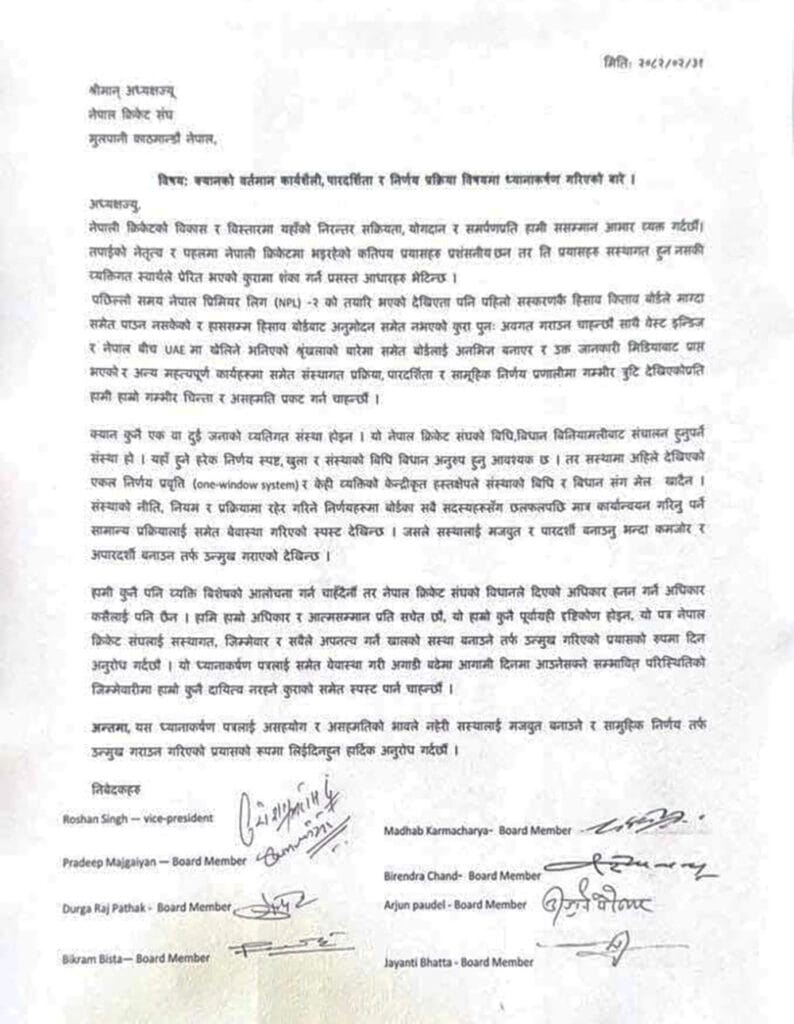 मिति: २०८२/०२/३१
श्रीमान् अध्यक्षज्यू
नेपाल क्रिकेट संघ
मुलपानी काठमान्डौ नेपाल,
विषय: क्यानको वर्तमान कार्यशैली, पारदर्शिता र निर्णय प्रक्रिया विषयमा ध्यानाकर्षण गरिएको बारे ।
अध्यक्षज्यु,
नेपाली क्रिकेटको विकास र विस्तारमा यहाँको निरन्तर सक्रियता, योगदान र समर्पणप्रति हामी ससम्मान आभार व्यक्त गर्दछौं।
तपाईको नेतृत्व र पहलमा नेपाली क्रिकेटमा भइरहेको कतिपय प्रयासहरु प्रशंसनीय छन तर ति प्रयासहरु सस्थागत हुन नसकी
व्यक्तिगत स्वार्थले प्रेरित भएको कुरामा शंका गर्ने प्रसस्त आधारहरु भेटिन्छ ।
पछिल्लो समय नेपाल प्रिमियर लिग (NPL) -२ को तयारि भएको देखिएता पनि पहिलो सस्करणकै हिसाव किताव बोर्डले माग्दा
समेत पाउन नसकेको र हालसम्म हिसाव बोर्डबाट अनुमोदन समेत नभएको कुरा पुनः अवगत गराउन चाहन्छौं साथै वेस्ट इन्डिज
र नेपाल बीच UAE मा खेलिने भनिएको श्रृंखलाको बारेमा समेत बोर्डलाई अनभिज्ञ बनाएर र उक्त जानकारी मिडियाबाट प्राप्त
भएको र अन्य महत्वपूर्ण कार्यहरुमा समेत संस्थागत प्रक्रिया, पारदर्शिता र सामूहिक निर्णय प्रणालीमा गम्भीर त्रुटि देखिएकोप्रति
हामी हाम्रो गम्भीर चिन्ता र असहमति प्रकट गर्न चाहन्छौं ।
क्यान कुनै एक वा दुई जनाको व्यतिगत संस्था होइन । यो नेपाल क्रिकेट संघको बिधि,बिधान बिनियामलीवाट संचालन हुनुपर्ने
संस्था हो । यहाँ हुने हरेक निर्णय स्पष्ट, खुला र संस्थाको बिधि बिधान अनुरुप हुनु आवश्यक छ । तर सस्थामा अहिले देखिएको
एकल निर्णय प्रवृति (one-window system) र केही व्यक्तिको केन्द्रीकृत हस्तक्षेपले संस्थाको बिधि र बिधान संग मेल खादैन ।
संस्थाको नीति, नियम र प्रक्रियामा रहेर गरिने निर्णयहरुमा बोर्डका सबै सदस्यहरुसँग छलफलपछि मात्र कार्यान्वयन गरिनु पर्ने
सामान्य प्रक्रियालाई समेत बेवास्था गरिएको स्पस्ट देखिन्छ । जसले सस्थालाई मजवुत र पारदर्शी बनाउनु भन्दा कमजोर र
अपारदर्शी बनाउन तर्फ उन्मुख गराएको देखिन्छ ।
हामी कुनै पनि व्यक्ति बिशेषको आलोचना गर्न चाहँदैनौं तर नेपाल क्रिकेट संघको बिधानले दिएको अधिकार हनन गर्ने अधिकार
कसैलाई पनि छैन । हामि हाम्रो अधिकार र आत्मसम्मान प्रति सचेत छौं, यो हाम्रो कुनै पूर्वाग्रही दृष्टिकोण होइन, यो पत्र नेपाल
क्रिकेट संघलाई सस्थागत, जिम्मेवार र सबैले अपनत्व गर्ने खालको सस्था बनाउने तर्फ उन्मुख गरिएको प्रयासको रुपमा दिन
अनुरोध गर्दछौं । यो ध्यानाकर्षण पत्रलाई समेत बेवास्था गरी अगाडी बढेमा आगामी दिनमा आउनेसक्ने सम्भावित परिस्थितिको
जिम्मेवारीमा हाम्रो कुनै दायित्व नरहने कुराको समेत स्पस्ट पार्न चाहन्छौं ।
अन्तमा, यस ध्यानाकर्षण पत्रलाई असहयोग र असहमतिको भावले नहेरी सस्थालाई मजबुत बनाउने र सामुहिक निर्णय तर्फ
उन्मुख गराउन गरिएको प्रयासको रुपमा लिईदिनहुन हार्दिक अनुरोध गर्दछौं ।
निवेदकहरु
Roshan Singh — vice-president
Madhab Karmacharya- Board Member
Pradeep Majgaiyan — Board Member
Birendra Chand- Board Member
Durga Raj Pathak - Board Member
Arjun paudel - Board Member
Bikram Bista— Board Member
Jayanti Bhatta - Board Member